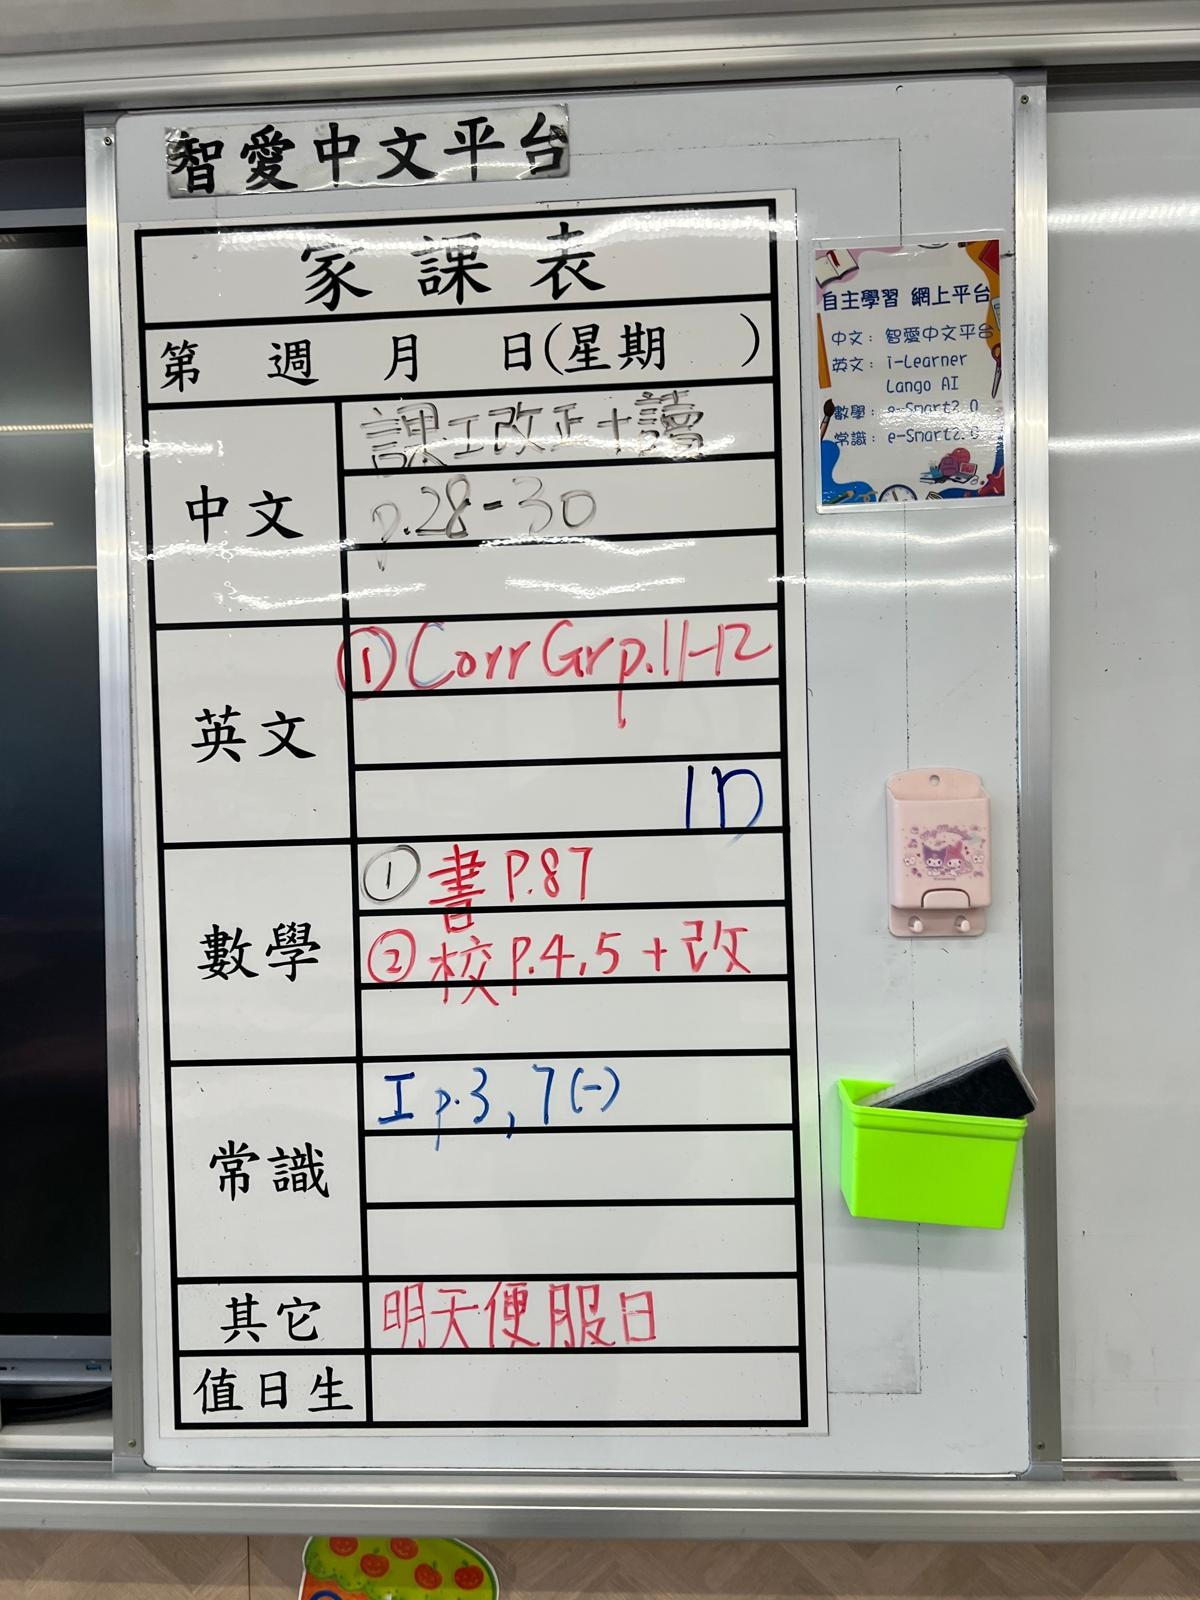 智愛中文平台
家課表
第 週 月 日(星期 )
中文
課工改正+讀
p.28-30
英文
① Corr Gr p.11-12
1D
數學
① 書 P.87
② 校 P.4,5 + 改
常識
工 p.3, 7(-)
其它
明天便服日
值日生
自主學習 網上平台
中文: 智愛中文平台
英文: i-Learner
Lango AI
數學: e-Smart2.0
常識: e-Smart2.0
My Melody